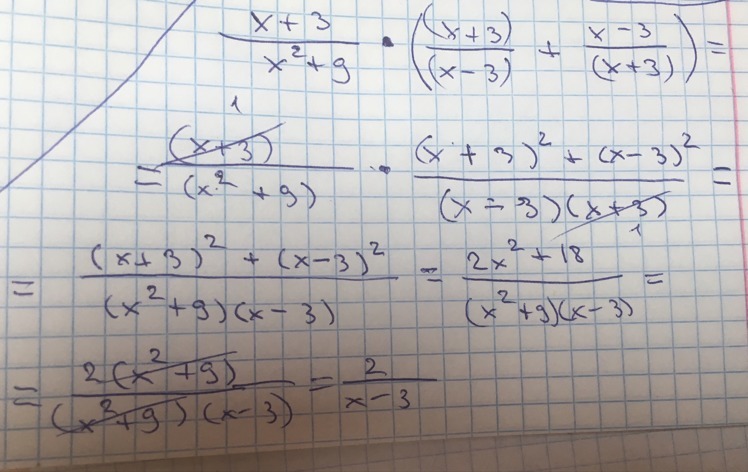 (x + 3)/(x² + 9) · ((x+3)/(x−3) + (x−3)/(x+3)) =
= (x+3)/(x² + 9) · ((x + 3)² + (x−3)²)/((x−3)(x+3)) =
= ((x+3)² + (x−3)²)/((x²+9)(x−3)) = (2x² + 18)/((x²+9)(x−3)) =
= 2(x²+9)/((x²+9)(x−3)) = 2/(x−3)